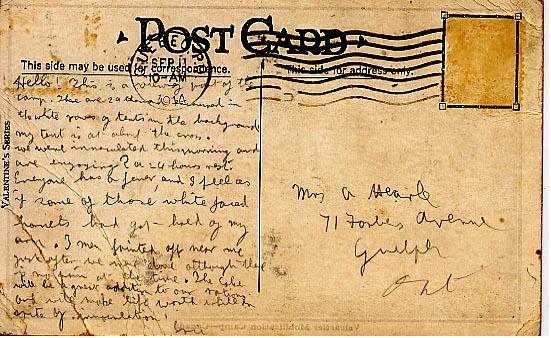 POST CARD
This side may be used for correspondence.
This side for address only.
SEP 11
10-AM
1914
VALENTINE'S SERIES
Hello! This is a view of part of the
camp. There are in
the white rows of tents in the background
my tent is at about the cross.
we were innoculated this morning and
are enjoying? a 24 hours rest.
Everyone has a fever, and I feel as
if some of those white faced
hornets had got hold of my
arm. 3 men fainted off near me
just after we were done although there
is no pain at the time. The cake
will be a great addition to our rations
and will make life worth while in
spite of innoculation!
Mrs A Hearle
71 Forbes Avenue
Guelph
Ont
Valcartier Mobilization Camp